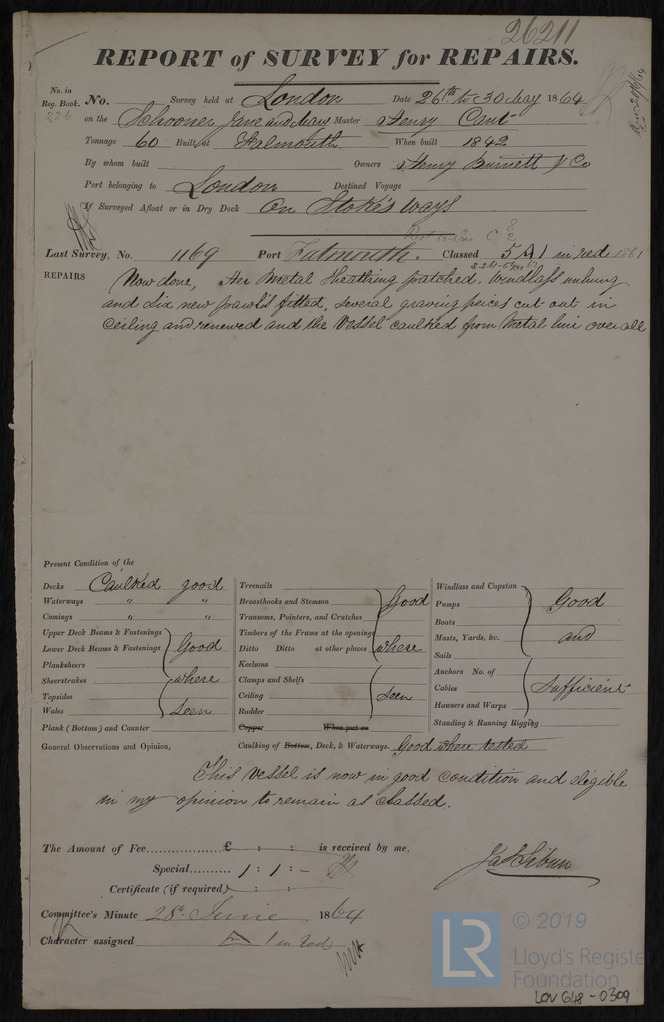 26211
REPORT of SURVEY for REPAIRS.
No. in Reg. Book. 226 No. Survey held at London Date 26th to 30 May 1864
on the Schooner Jane and Mary Master Henry Cant
Tonnage 60 Built at Falmouth When built 1842
By whom built Owners Henry Burnett & Co
Port belonging to London Destined Voyage
If Surveyed Afloat or in Dry Dock On Stokes ways
Last Survey, No. 1169 Port Falmouth. Classed 5 A 1 in red 1861
REPAIRS Now done, Her Metal Sheathing patched, Windlass unhung
and six new pawls fitted, several graving pieces cut out in
Ceiling and renewed and the Vessel caulked from Metal line over all
Present Condition of the
Decks Caulked good
Waterways " "
Comings " "
Upper Deck Beams & Fastenings
Lower Deck Beams & Fastenings Good
Planksheers
Sheerstrakes where
Topsides
Wales seen
Plank (Bottom) and Counter
Treenails
Breasthooks and Stemson Good
Transoms, Pointers, and Crutches
Timbers of the Frame at the openings
Ditto Ditto at other places where
Keelsons
Clamps and Shelfs
Ceiling seen
Rudder
Copper When put on
Caulking of Bottom, Deck, & Waterways. Good where tested
Windlass and Capstan
Pumps Good
Boats
Masts, Yards, &c. and
Sails
Anchors No. of
Cables Sufficient
Hawsers and Warps
Standing & Running Rigging
General Observations and Opinion,
This Vessel is now in good condition and eligible
in my opinion to remain as classed.
The Amount of Fee £ : : is received by me,
Special 1 : 1 : -
Certificate (if required) : :
Committee's Minute 28th June 1864
Character assigned A 1 in red
© 2019
LR
Lloyd's Register
Foundation
LON 648-0309